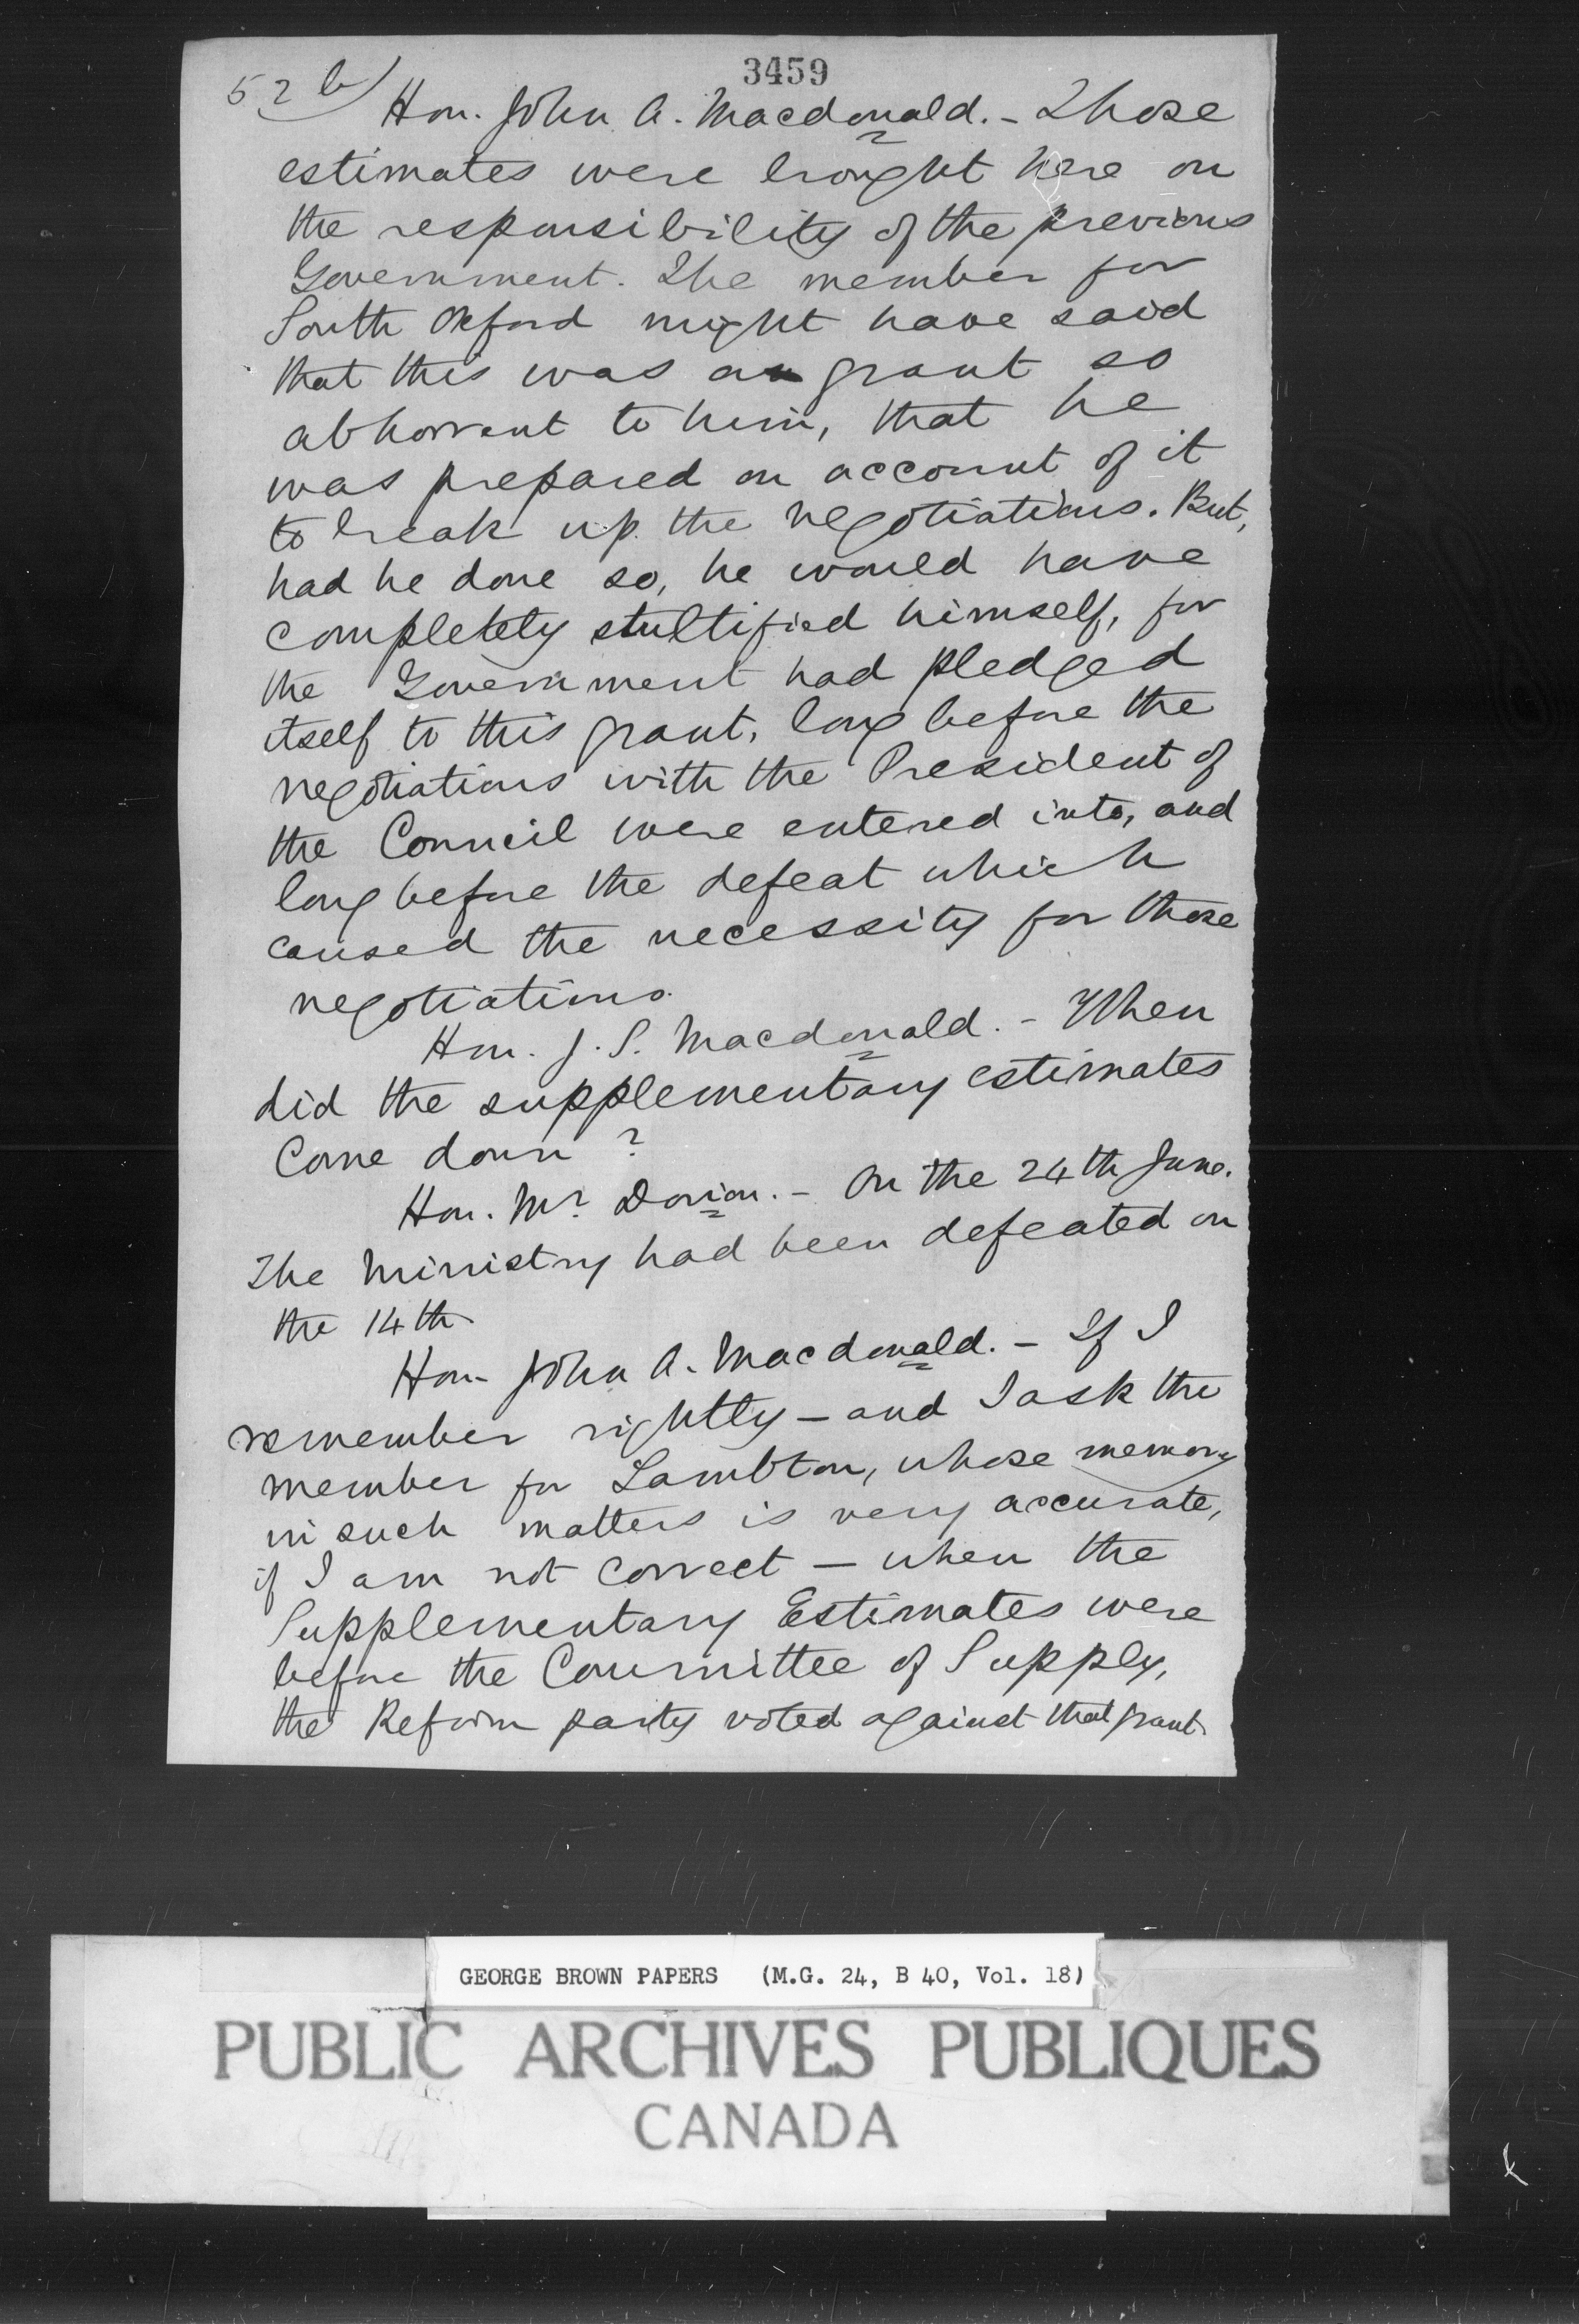 3459
52 b/
Hon. John A. Macdonald. - Those
estimates were brought here on
the responsibility of the previous
Government. The member for
South Oxford might have said
that this was a grant so
abhorrent to him, that he
was prepared on account of it
to break up the negotiations. But,
had he done so, he would have
completely stultified himself, for
the Government had pledged
itself to this grant, long before the
negotiations with the President of
the Council were entered into, and
long before the defeat which
caused the necessity for those
negotiations.
Hon. J. S. Macdonald. - When
did the supplementary estimates
Come down ?
Hon. Mr. Dorion. - On the 24th June.
The Ministry had been defeated on
the 14th.
Hon. John A. Macdonald. - If I
remember rightly - and I ask the
member for Lambton, whose memory
in such matters is very accurate,
if I am not correct - when the
Supplementary Estimates were
before the Committee of Supply,
the Reform party voted against that grant.
GEORGE BROWN PAPERS (M.G. 24, B 40, Vol. 18)
PUBLIC ARCHIVES PUBLIQUES
CANADA